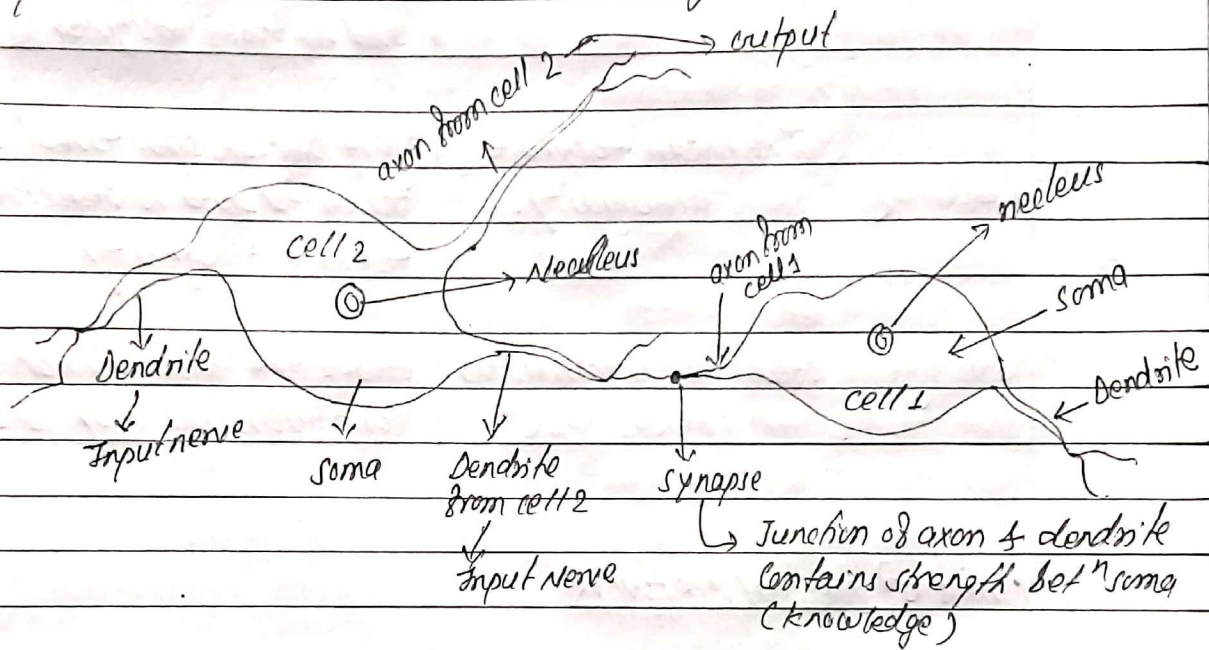 output
axon from cell 2
necleus
cell 2
Neculeus
axon from
cell 1
soma
Dendrite
Dendrite
cell 1
Input nerve
soma
Dendrite
from cell 2
synapse
Input Nerve
Junction of axon & dendrite
Contains strength betⁿ soma
(knowledge)